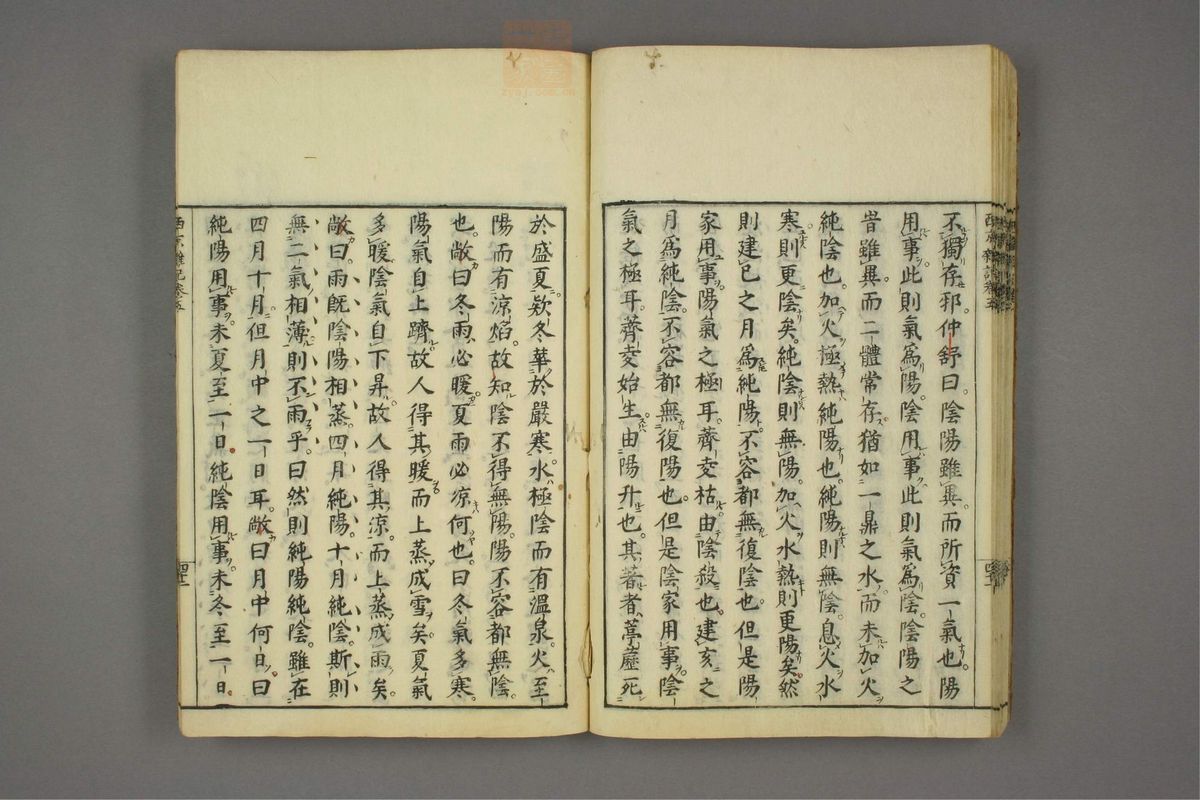 不獨存邪仲舒曰陰陽雖異而所資一氣也陽
用事此則氣爲陽陰用事此則氣爲陰陰陽之
旹雖異而二體常存猶如一鼎之水而未加火
純陰也加火極熱純陽也純陽則無陰息火水
寒則更陰矣純陰則無陽加火水熱則更陽矣然
則建巳之月爲純陽不容都無復陰也但是陽
家用事陽氣之極耳薺麥枯由陰殺也建亥之
月爲純陰不容都無復陽也但是陰家用事陰
氣之極耳薺麥始生由陽升也其著者葶藶死
於盛夏欵冬華於嚴寒水極陰而有溫泉火至
陽而有涼焰故知陰不得無陽陽不容都無陰
也敞曰冬雨必暖夏雨必涼何也曰冬氣多寒
陽氣自上躋故人得其暖而上蒸成雪矣夏氣
多暖陰氣自下昇故人得其涼而上蒸成雨矣
敞曰雨旣陰陽相蒸四月純陽十月純陰斯則
無二氣相薄則不雨乎曰然則純陽純陰雖在
四月十月但月中之一日耳敞曰月中何日曰
純陽用事未夏至一日純陰用事未冬至一日
西京雜記卷五